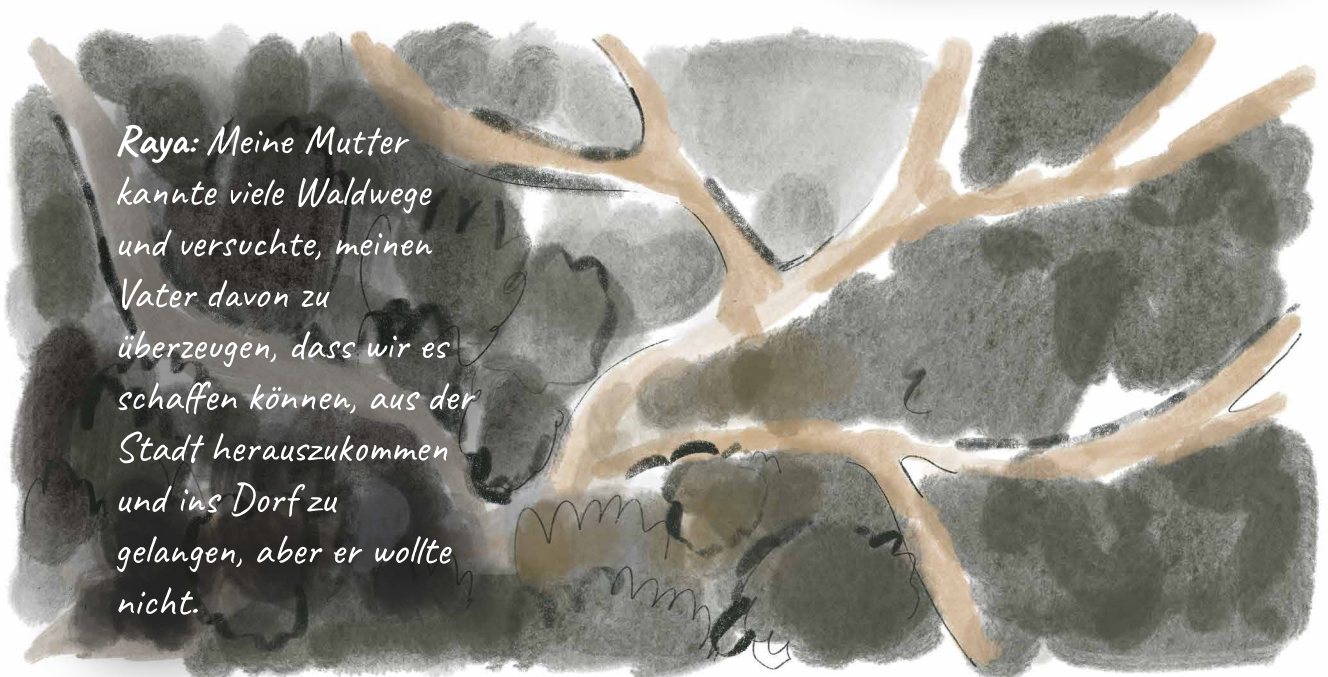 Raya: Meine Mutter
kannte viele Waldwege
und versuchte, meinen
Vater davon zu
überzeugen, dass wir es
schaffen können, aus der
Stadt herauszukommen
und ins Dorf zu
gelangen, aber er wollte
nicht.